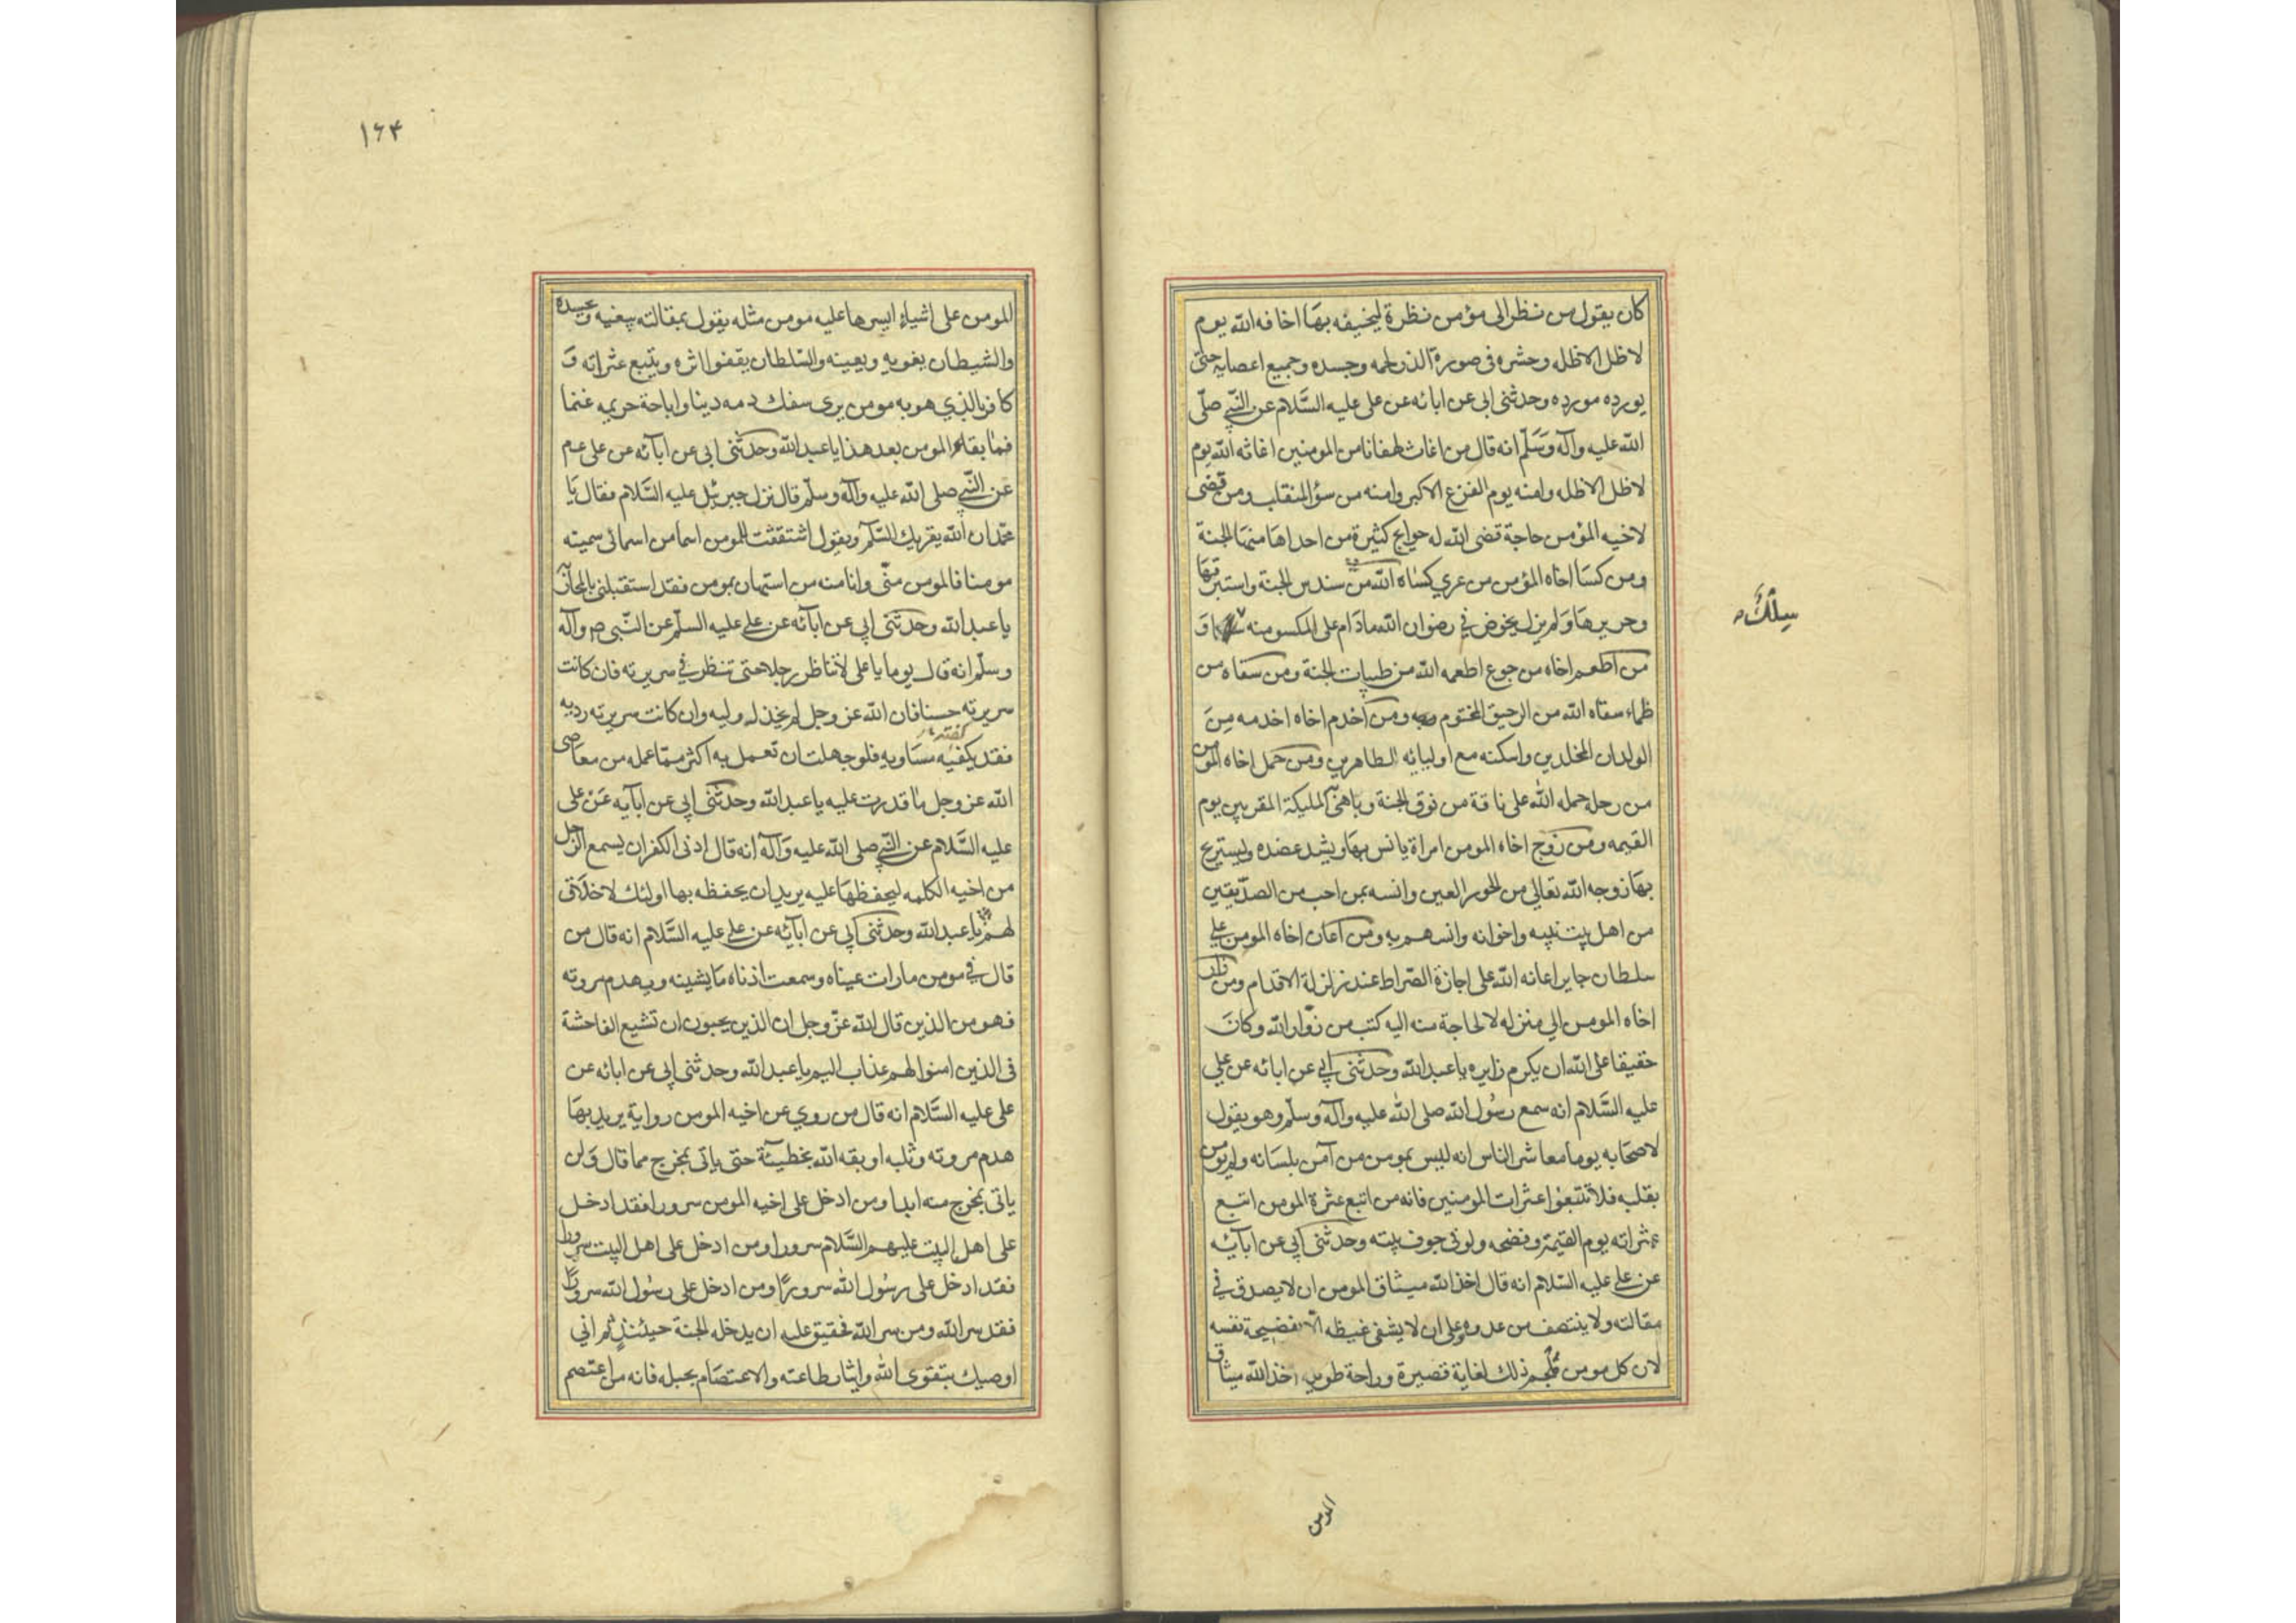 كان يقول من نظر الى مؤمن نظرة ليخيفه بها اخافه الله يوم
لا ظل الا ظله وحشره فى صورة الذر لحمه وجسده وجميع اعضايه حتى
يورده مورده وحدثنى ابى عن ابائه عن على عليه السلام عن النبي صلى
الله عليه وآله وسلم انه قال من اغاث لهفانا من المومنين اغاثه الله يوم
لا ظل الا ظله وامنه يوم الفزع الاكبر وامنه من سؤ المنقلب ومن قضى
لاخيه المؤمن حاجة قضى الله له حوايج كثيرة من احداها منها الجنة
ومن كسا اخاه المؤمن من عري كساه الله من سندس الجنة واستبرقها
وحريرها ولم يزل يخوض في رضوان الله ما دام على المكسو منه سلك و
من اطعم اخاه من جوع اطعمه الله من طيبات الجنة ومن سقاه من
ظماء سقاه الله من الرحيق المختوم ومن اخدم اخاه اخدمه من
الولدان المخلدين واسكنه مع اوليائه الطاهرين ومن حمل اخاه المومن
من رحل حمله الله على ناقة من نوق الجنة وباهى به المليكة المقربين يوم
القيمه ومن زوج اخاه المومن امراة يانس بها ويشد عضده وليستريح
بها زوجه الله تعالي من الحور العين وانسه بمن احب من الصديقين
من اهل بيت نبيه واخوانه وانسهم به ومن اعان اخاه المومن علي
سلطان جاير اعانه الله على اجازة الصراط عند زلزلة الاقدام ومن زار
اخاه المومن الي منزله لا لحاجة منه اليه كتب من زوار الله وكان
حقيقا على الله ان يكرم زايره يا عبد الله وحدثنى ابي عن ابائه عن علي
عليه السلام انه سمع رسول الله صلى الله عليه وآله وسلم وهو يقول
لاصحابه يوما معاشر الناس انه ليس بمومن من آمن بلسانه ولم يومن
بقلبه فلا تتبعوا عثرات المومنين فانه من اتبع عثرة المومن اتبع
عثراته يوم القيمة وفضحه ولو في جوف بيته وحدثنى ابي عن ابآئه
عن علي عليه السلام انه قال اخذ الله ميثاق المومن ان لا يصدق في
مقالته ولا ينتصف من عدوه وعلى ان لا يشفى غيظه الا بفضيحة نفسه
لان كل مومن ملجم ذلك لغاية قصيرة وراحة طويلة اخذ الله ميثاق
سلك
المومن
١٦٤
المومن على اشياء ايسرها عليه مومن مثله يقول بمقالته يبغيه ويحسده
والشيطان يغويه ويعينه والسلطان يقفوا اثره ويتبع عثراته و
كافر بالذي هو به مومن يرى سفك دمه دينا واباحة حريمه غنما
فما بقاء المومن بعد هذا يا عبد الله وحدثنى ابى عن ابآئه عن على عم
عن النبي صلى الله عليه وآله وسلم قال نزل جبرئيل عليه السلام فقال يا
محمد ان الله يقريك السلام ويقول اشتققت للمومن اسما من اسمائى سميته
مومنا فالمومن منى وانا منه من استهان بمومن فقد استقبلنى بالمحاربة
يا عبد الله وحدثنى ابي عن ابآئه عن علي عليه السلم عن النبى ص وآله
وسلم انه قال يوما يا على لا تناظر رجلا حتى تنظر في سريرته فان كانت
سريرته حسنا فان الله عز وجل لم يخذل وليه وان كانت سريرته رديه
فقد يكفيه مساويه فلو جهلت ان تعمل به اكثر مما عمله من معاصى
الله عز وجل ما قدرت عليه يا عبد الله وحدثنى ابي عن ابآيه عن على
عليه السلام عن النبي صلى الله عليه وآله انه قال ادنى الكفر ان يسمع الرجل
من اخيه الكلمه ليحفظها عليه يريد ان يحفظه بها اولئك لا خلاق
لهم يا عبد الله وحدثنى ابي عن ابآئه عن علي عليه السلام انه قال من
قال في مومن ما رات عيناه وسمعت اذناه ما يشينه ويهدم مروته
فهو من الذين قال الله عز وجل ان الذين يحبون ان تشيع الفاحشة
فى الذين امنوا لهم عذاب اليم يا عبد الله وحدثنى ابي عن ابائه عن
على عليه السلام انه قال من روي عن اخيه المومن رواية يريد بها
هدم مروته وثلبه اوبقه الله بخطيئة حتى ياتى بمخرج مما قال ولن
ياتى بمخرج منه ابدا ومن ادخل على اخيه المومن سرورا فقد ادخل
على اهل البيت عليهم السلام سرورا ومن ادخل على اهل البيت سرورا
فقد ادخل على رسول الله سرورا ومن ادخل على رسول الله سرورا
فقد سر الله ومن سر الله فحقيق عليه ان يدخله الجنة حينئذ ثم اني
اوصيك بتقوى الله وايثار طاعته والاعتصام بحبله فانه من اعتصم